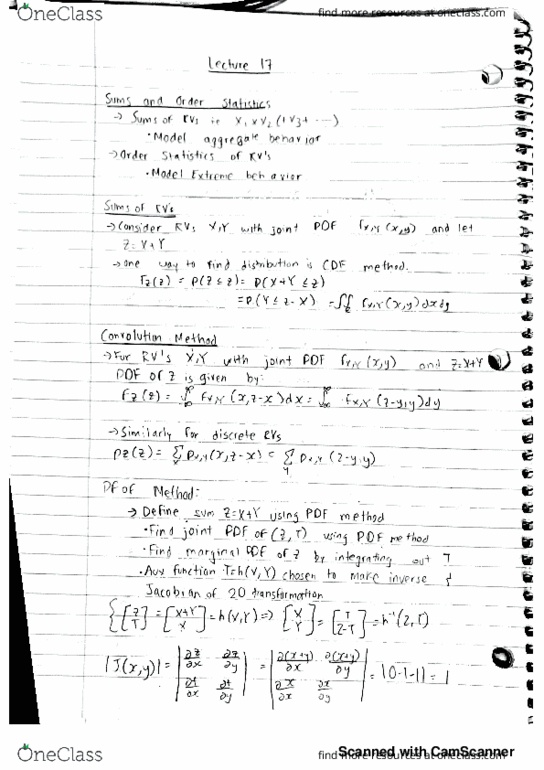 OneClass
find more resources at oneclass.com
Lecture 17
Sums and Order Statistics
→ Sums of RVs ie X₁ + X₂ (+ X₃ + ...)
• Model aggregate behavior
→ Order Statistics of RV's
• Model Extreme behavior
Sums of RV's
→ Consider RVs X,Y with joint PDF fx,y (x,y) and let
Z = X+Y
→ One way to find distribution is CDF method.
Fz(z) = P(Z ≤ z) = P(X+Y ≤ z)
= P(Y ≤ z-X) = ∬ fx,y(x,y)dxdy
Convolution Method
→ For RV's X,Y with joint PDF fx,y (x,y) and Z=X+Y
PDF of Z is given by:
fz(z) = ∫ fx,y (x,z-x)dx = ∫ fx,y (z-y,y)dy
→ Similarly for discrete RVs
pz(z) = Σ px,y(x,z-x) = Σ px,y (z-y,y)
PDF Method:
→ Define sum Z=X+Y using PDF method
• Find joint PDF of (Z,T) using PDF method
• Find marginal PDF of Z by integrating out T
• Aux function T=h(X,Y) chosen to make inverse {
Jacobian of 2D transformation
{[Z T] = [X+Y X] = h(X,Y) => [X Y] = [T Z-T] = h⁻¹(Z,T)
|J(x,y)| = |∂z/∂x ∂z/∂y ∂t/∂x ∂t/∂y| = |∂(x+y)/∂x ∂(x+y)/∂y ∂x/∂x ∂x/∂y| = |0-1-1| = 1
OneClass
find more resources at oneclass.com
Scanned with CamScanner